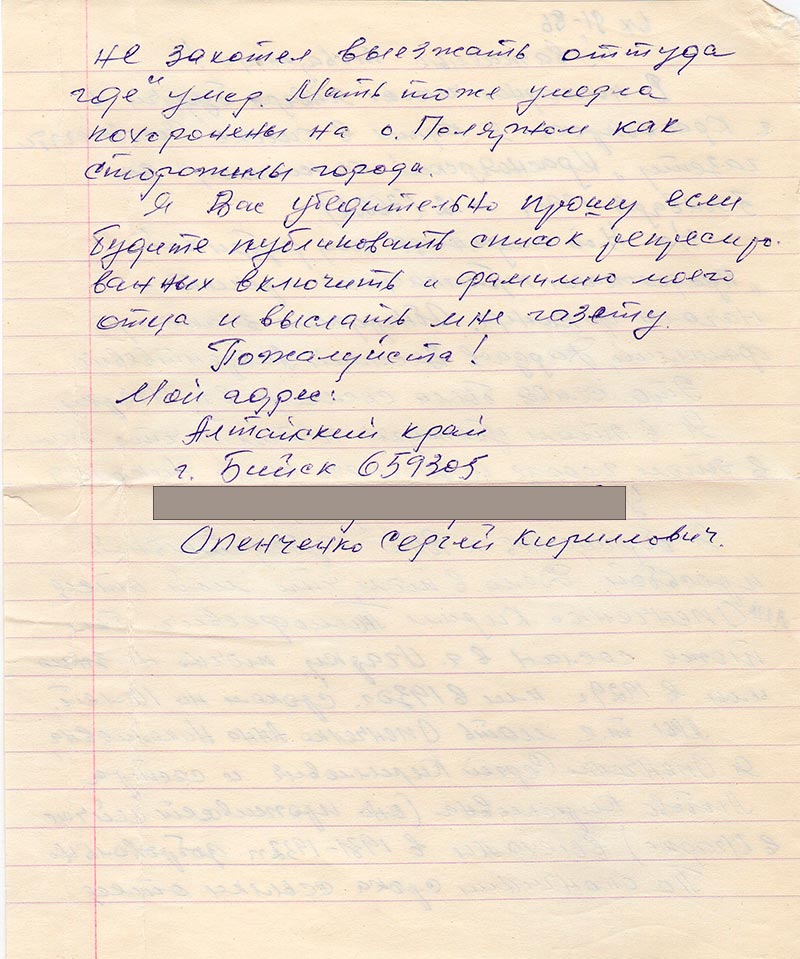 не захотел выезжать оттуда
где и умер. Мать тоже умерла
похоронены на о. Полярном как
сторожилы города.
Я Вас убедительно прошу если
будите публиковать список репресиро-
ванных включить и фамилию моего
отца и выслать мне газету.
Пожалуйста!
Мой адрес:
Алтайский край
г. Бийск 659305
Опенченко Сергей Кириллович.